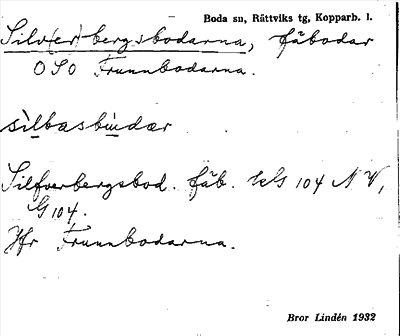 Boda sn, Rättviks tg, Kopparb. l.
Silv(er)bergsbodarna, fäbodar
OSO Frunnbodarna.
silbasbùdær
Silfverbergsbod. fäb. GS 104 NV,
G 104.
Jfr Frunnbodarna.
Bror Lindén 1932